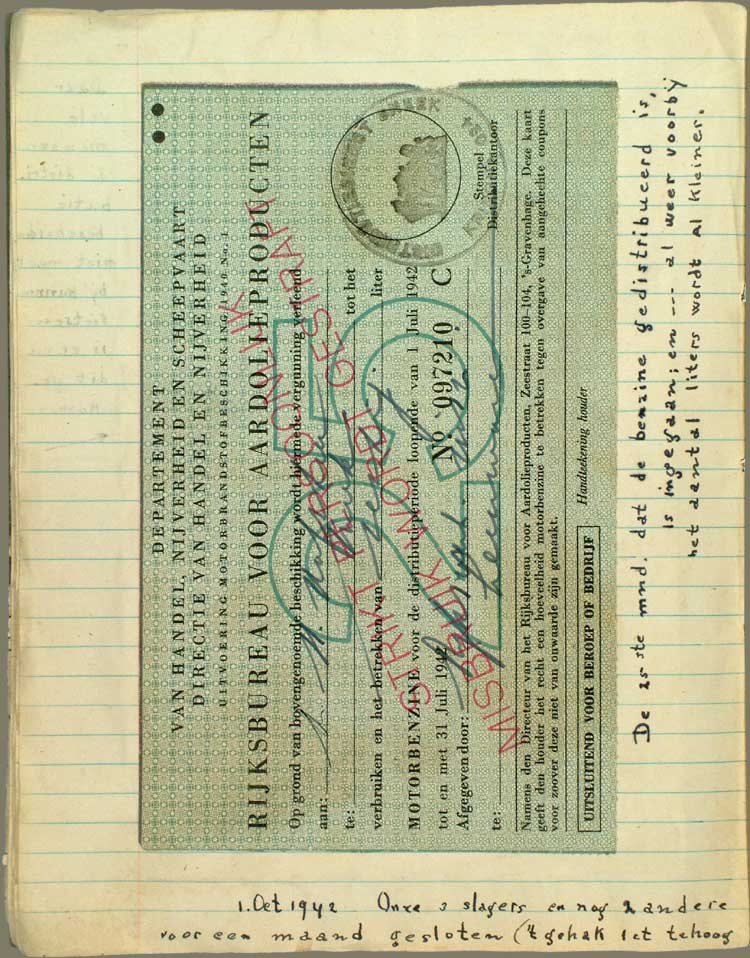 DEPARTEMENT
VAN HANDEL, NIJVERHEID EN SCHEEPVAART
DIRECTIE VAN HANDEL EN NIJVERHEID
UITVOERING MOTORBRANDSTOFBESCHIKKING 1940 No. 1
RIJKSBUREAU VOOR AARDOLIEPRODUCTEN
Op grond van bovengenoemde beschikking wordt hiermede vergunning verleend
aan:
te: tot het
verbruiken en het betrekken van liter
MOTORBENZINE voor de distributieperiode loopende van 1 Juli 1942
tot en met 31 Juli 1942 No 097210 C
Afgegeven door:
te: Leeuwarden
Stempel
Distributiekantoor
STRIKT PERSOONLIJK
MISBRUIK WORDT GESTRAFT
25
Namens den Directeur van het Rijksbureau voor Aardolieproducten, Zeestraat 100-104, 's-Gravenhage. Deze kaart
geeft den houder het recht een hoeveelheid motorbenzine te betrekken tegen overgave van aangehechte coupons
voor zoover deze niet van onwaarde zijn gemaakt.
UITSLUITEND VOOR BEROEP OF BEDRIJF Handteekening houder
De 25ste mnd. dat de benzine gedistribueerd is,
is ingegaan; en --- al weer voorbij
het aantal liters wordt al kleiner.
1. Oct 1942 Onze 3 slagers en nog 2 andere
voor een maand gesloten ('t gehak iet te hoog